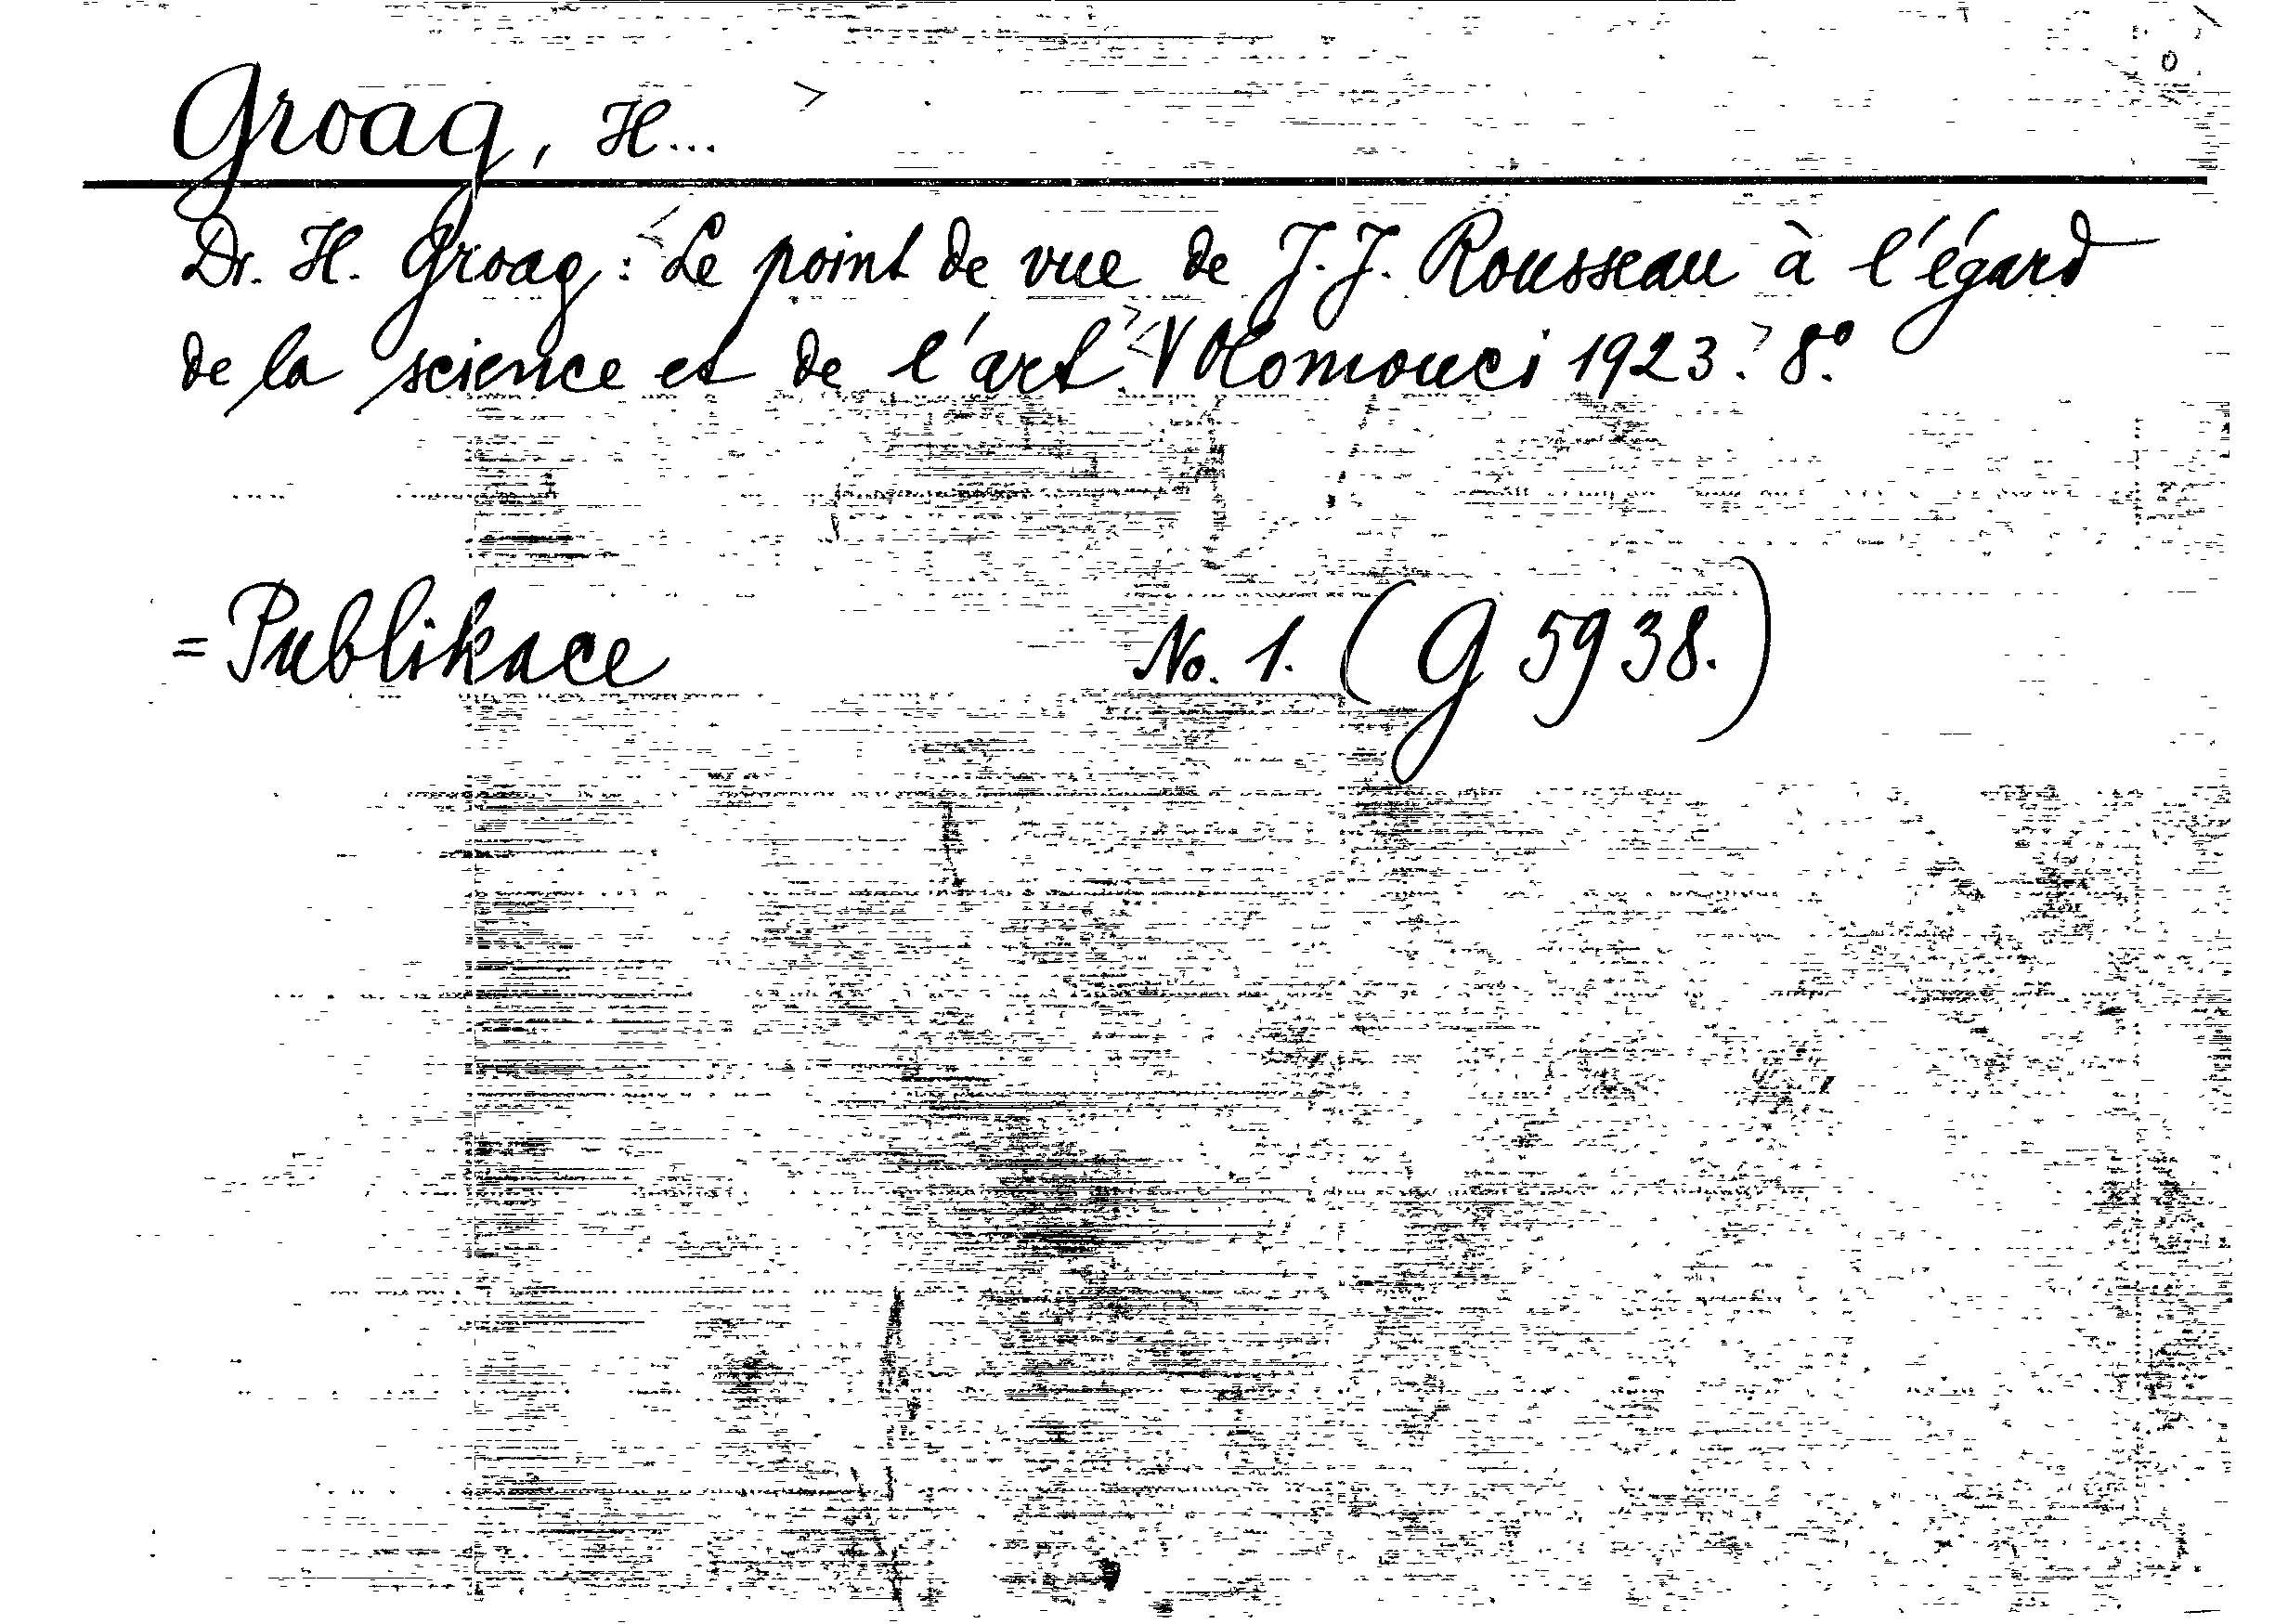 Groag, H...
Dr. H. Groag: Le point de vue de J. J. Rousseau à l'égard
de la science et de l'art. V Olomouci 1923. 8°.
= Publikace No. 1. (G 5938.)